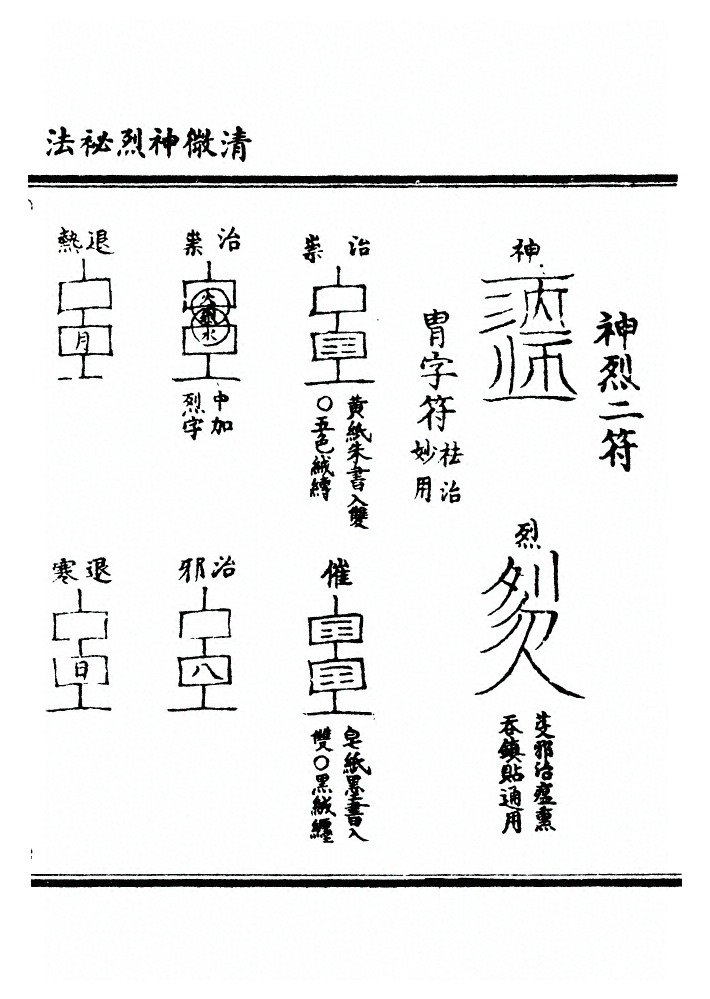 清微神烈祕法
神烈二符
神
烈
治邪治瘟熏
吞鎮貼通用
胄字符
祛治
妙用
治祟
黃紙朱書入雙
〇五色絨縛
催
皂紙墨書入
雙〇黑絨纏
治祟
火
水
中加
烈字
治邪
八
退熱
月
退寒
日